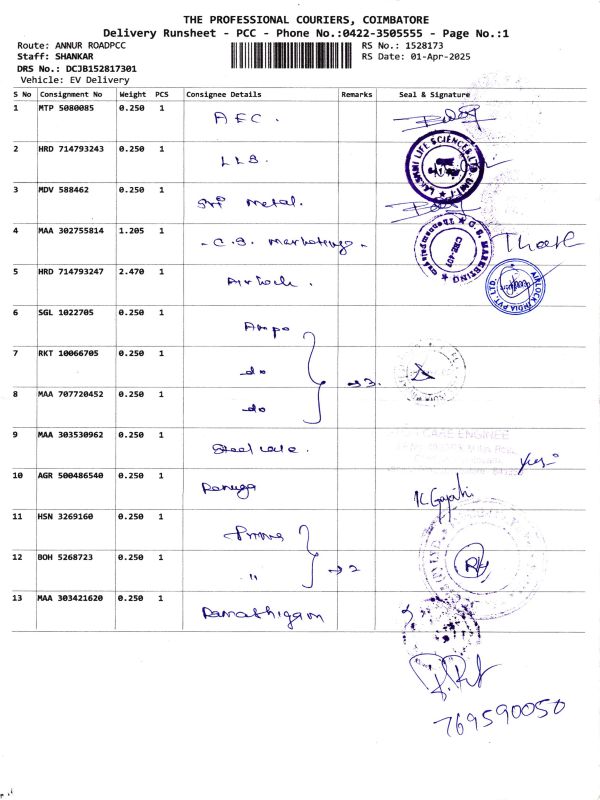 THE PROFESSIONAL COURIERS, COIMBATORE
Delivery Runsheet - PCC - Phone No.:0422-3505555 - Page No.:1
Route: ANNUR ROADPCC RS No.: 1528173
Staff: SHANKAR RS Date: 01-Apr-2025
DRS No.: DCJB152817301
Vehicle: EV Delivery
S No Consignment No Weight PCS Consignee Details Remarks Seal & Signature
1 MTP 5080085 0.250 1 AEC.
2 HRD 714793243 0.250 1 LLS. LAKSHMI LIFE SCIENCES LTD. UNIT-I
3 MDV 588462 0.250 1 Sri metal.
4 MAA 302755814 1.205 1 - C.S. marketing - C.S. MARKETING CBE-401
5 HRD 714793247 2.470 1 Airlock. AIRLOCK INDIA PVT. LTD.
6 SGL 1022705 0.250 1 Ampo
7 RKT 10066705 0.250 1 do → 3.
8 MAA 707720452 0.250 1 do
9 MAA 303530962 0.250 1 Steel care.
10 AGR 500486540 0.250 1 K. Gopathi
11 HSN 3269160 0.250 1
12 BOH 5268723 0.250 1 " → 2
13 MAA 303421620 0.250 1
769590050